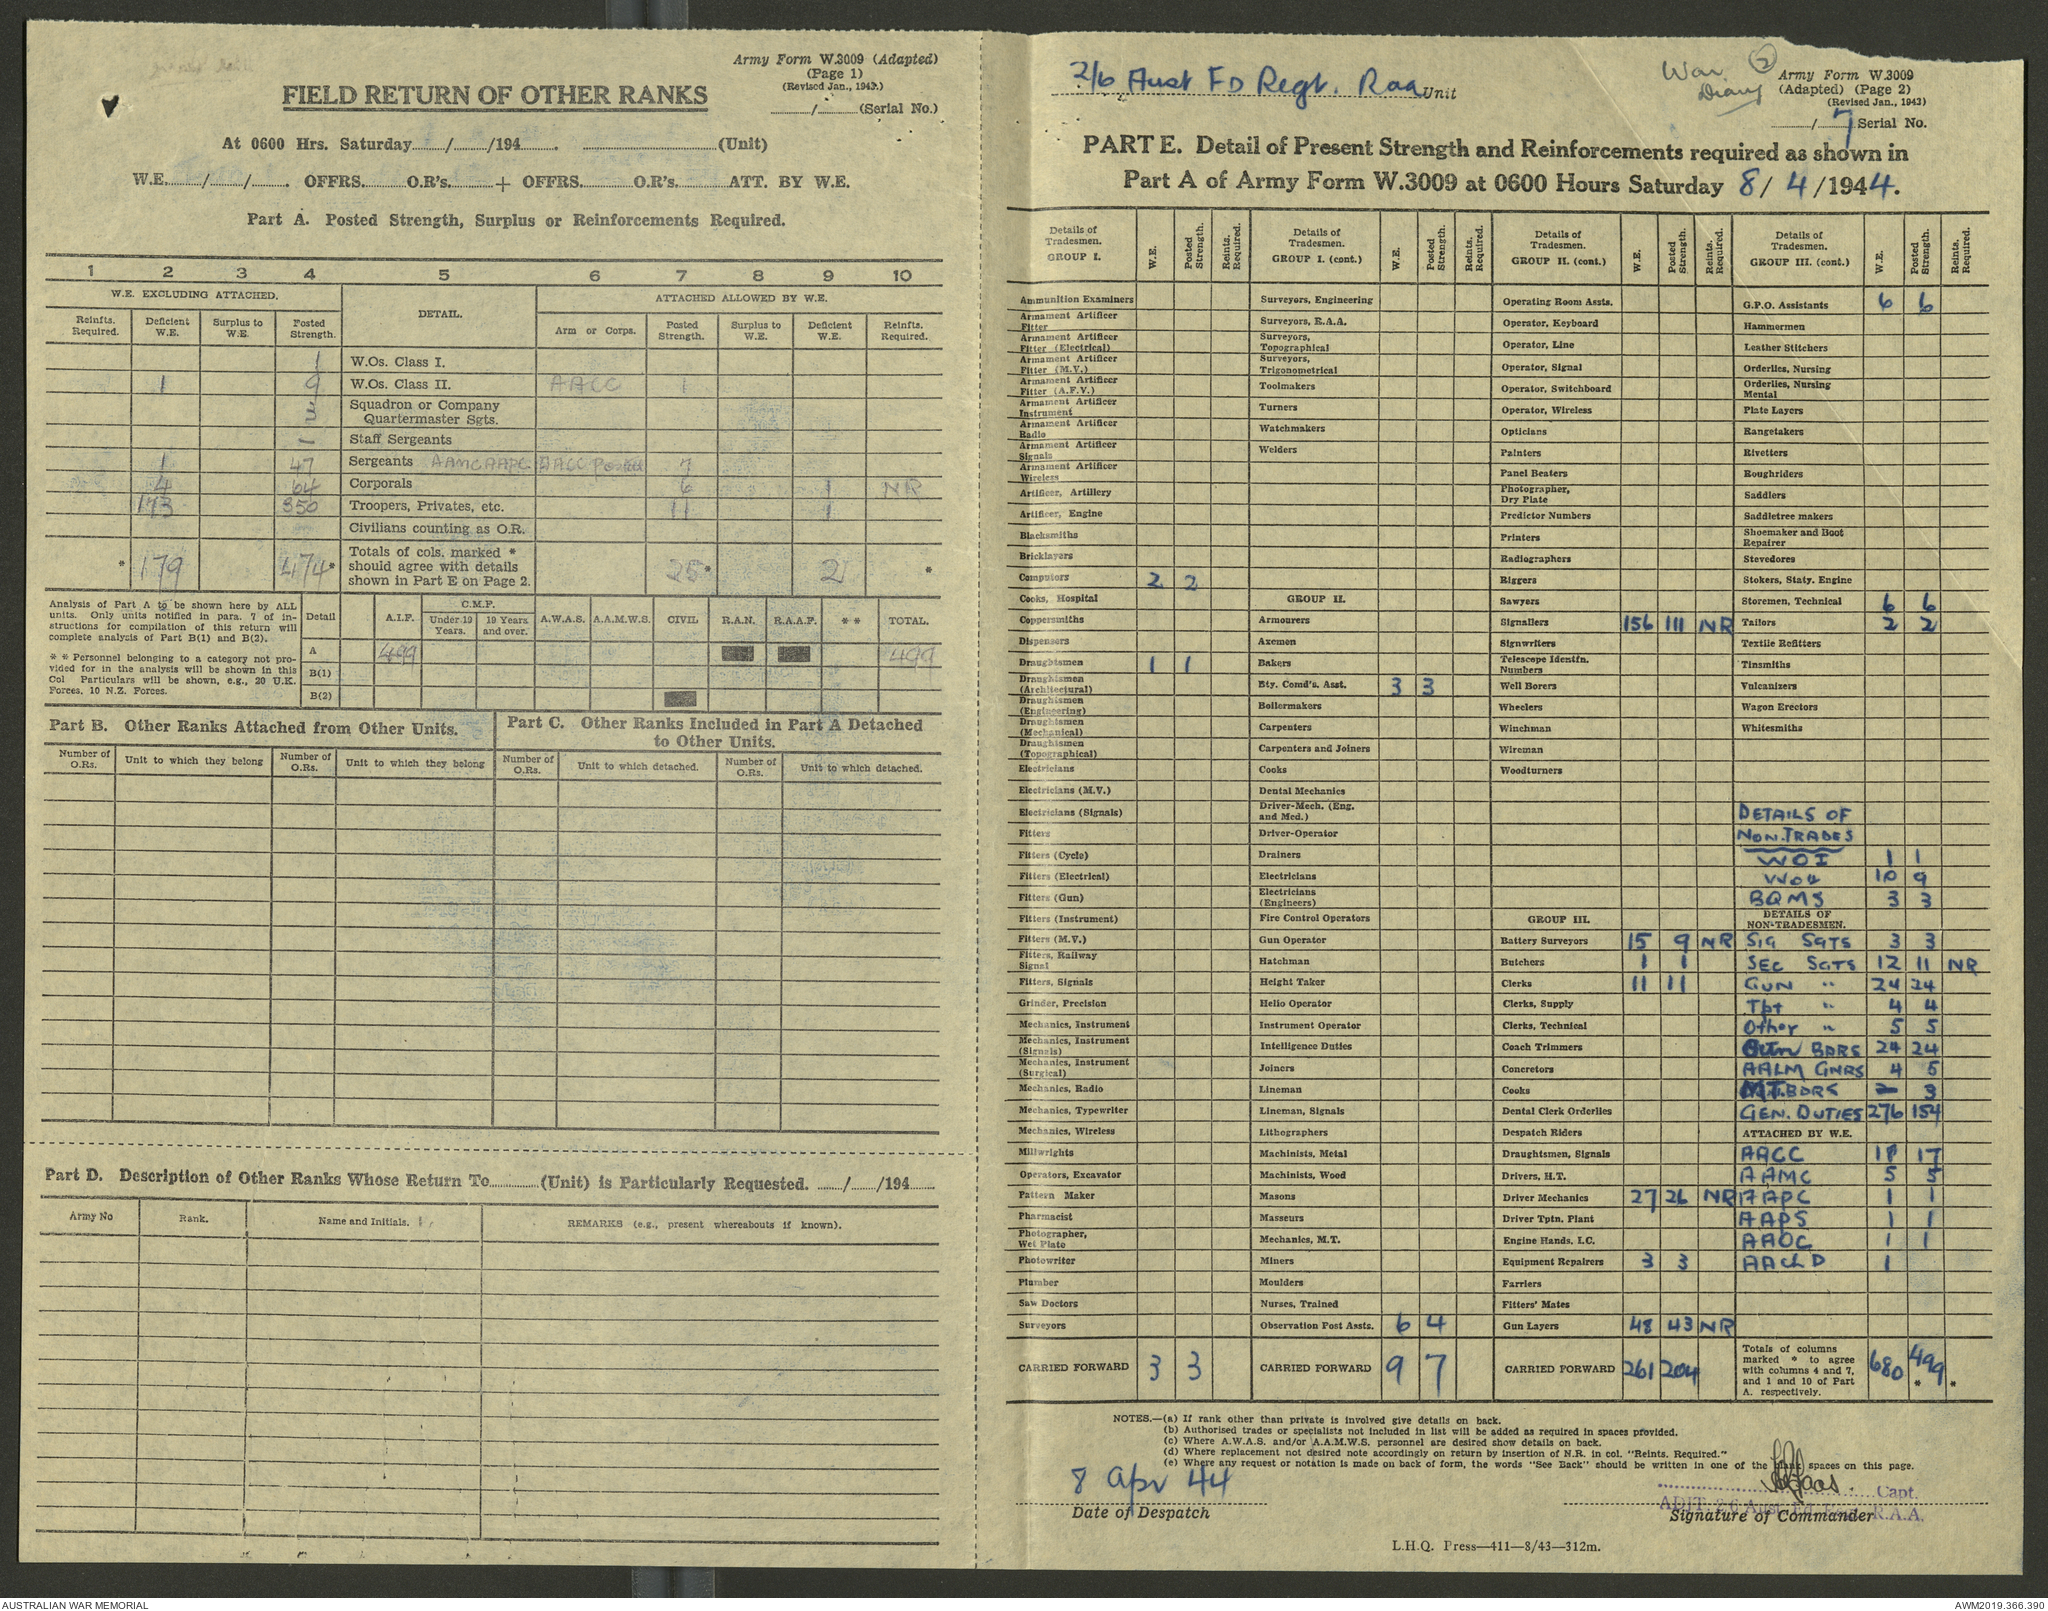 Army Form W.3009 (Adapted)
(Page 1)
(Revised Jan., 1943.)
FIELD RETURN OF OTHER RANKS
....../...... (Serial No.)
At 0600 Hrs. Saturday....../....../194...... ......(Unit)
W.E....../....../...... OFFRS.......O.R's.......+ OFFRS.......O.R's.......ATT. BY W.E.
Part A. Posted Strength, Surplus or Reinforcements Required.
1 2 3 4 5 6 7 8 9 10
W.E. EXCLUDING ATTACHED. DETAIL. ATTACHED ALLOWED BY W.E.
Reinfts. Required. Deficient W.E. Surplus to W.E. Posted Strength. Arm or Corps. Posted Strength. Surplus to W.E. Deficient W.E. Reinfts. Required.
1 W.Os. Class I.
1 9 W.Os. Class II. AACC 1
3 Squadron or Company Quartermaster Sgts.
Staff Sergeants
1 47 Sergeants AAMC AAPC AACC Posted 7
4 64 Corporals 6 1 NR
173 350 Troopers, Privates, etc. 11 1
Civilians counting as O.R.
* 179 474* Totals of cols. marked * should agree with details shown in Part E on Page 2. 25* 2 *
Analysis of Part A to be shown here by ALL units. Only units notified in para. 7 of instructions for compilation of this return will complete analysis of Part B(1) and B(2).
** Personnel belonging to a category not provided for in the analysis will be shown in this Col Particulars will be shown, e.g., 20 U.K. Forces, 10 N.Z. Forces.
Detail A.I.F. C.M.F. Under 19 Years. 19 Years and over. A.W.A.S. A.A.M.W.S. CIVIL R.A.N. R.A.A.F. ** TOTAL.
A 499 499
B(1)
B(2)
Part B. Other Ranks Attached from Other Units.
Part C. Other Ranks Included in Part A Detached to Other Units.
Number of O.Rs. Unit to which they belong Number of O.Rs. Unit to which they belong Number of O.Rs. Unit to which detached. Number of O.Rs. Unit to which detached.
Part D. Description of Other Ranks Whose Return To......(Unit) is Particularly Requested. ....../....../194......
Army No Rank. Name and Initials. REMARKS (e.g., present whereabouts if known).
2/6 Aust FD Regt. RAA Unit
War Diary 2
Army Form W.3009
(Adapted) (Page 2)
(Revised Jan., 1943)
....../7 Serial No.
PART E. Detail of Present Strength and Reinforcements required as shown in
Part A of Army Form W.3009 at 0600 Hours Saturday 8/4/1944.
Details of Tradesmen. GROUP I. W.E. Posted Strength. Reints. Required.
Ammunition Examiners
Armament Artificer Fitter
Armament Artificer Fitter (Electrical)
Armament Artificer Fitter (M.V.)
Armament Artificer Fitter (A.F.V.)
Armament Artificer Instrument
Armament Artificer Radio
Armament Artificer Signals
Armament Artificer Wireless
Artificer, Artillery
Artificer, Engine
Blacksmiths
Bricklayers
Computors 2 2
Cooks, Hospital
Coppersmiths
Dispensers
Draughtsmen 1 1
Draughtsmen (Architectural)
Draughtsmen (Engineering)
Draughtsmen (Mechanical)
Draughtsmen (Topographical)
Electricians
Electricians (M.V.)
Electricians (Signals)
Fitters
Fitters (Cycle)
Fitters (Electrical)
Fitters (Gun)
Fitters (Instrument)
Fitters (M.V.)
Fitters, Railway Signal
Fitters, Signals
Grinder, Precision
Mechanics, Instrument
Mechanics, Instrument (Signals)
Mechanics, Instrument (Surgical)
Mechanics, Radio
Mechanics, Typewriter
Mechanics, Wireless
Millwrights
Operators, Excavator
Pattern Maker
Pharmacist
Photographer, Wet Plate
Photowriter
Plumber
Saw Doctors
Surveyors
CARRIED FORWARD 3 3
Details of Tradesmen. GROUP I. (cont.) W.E. Posted Strength. Reints. Required.
Surveyors, Engineering
Surveyors, R.A.A.
Surveyors, Topographical
Surveyors, Trigonometrical
Toolmakers
Turners
Watchmakers
Welders
GROUP II.
Armourers
Axemen
Bakers
Bty. Comd's. Asst. 3 3
Boilermakers
Carpenters
Carpenters and Joiners
Cooks
Dental Mechanics
Driver-Mech. (Eng. and Med.)
Driver-Operator
Drainers
Electricians
Electricians (Engineers)
Fire Control Operators
Gun Operator
Hatchman
Height Taker
Helio Operator
Instrument Operator
Intelligence Duties
Joiners
Lineman
Lineman, Signals
Lithographers
Machinists, Metal
Machinists, Wood
Masons
Masseurs
Mechanics, M.T.
Miners
Moulders
Nurses, Trained
Observation Post Assts. 6 4
CARRIED FORWARD 9 7
Details of Tradesmen. GROUP II. (cont.) W.E. Posted Strength. Reints. Required.
Operating Room Assts.
Operator, Keyboard
Operator, Line
Operator, Signal
Operator, Switchboard
Operator, Wireless
Opticians
Painters
Panel Beaters
Photographer, Dry Plate
Predictor Numbers
Printers
Radiographers
Riggers
Sawyers
Signallers 156 111 NR
Signwriters
Telescope Identfn. Numbers
Well Borers
Wheelers
Winchman
Wireman
Woodturners
GROUP III.
Battery Surveyors 15 9 NR
Butchers 1 1
Clerks 11 11
Clerks, Supply
Clerks, Technical
Coach Trimmers
Concretors
Cooks
Dental Clerk Orderlies
Despatch Riders
Draughtsmen, Signals
Drivers, H.T.
Driver Mechanics 27 26 NR
Driver Tptn. Plant
Engine Hands, I.C.
Equipment Repairers 3 3
Farriers
Fitters' Mates
Gun Layers 48 43 NR
CARRIED FORWARD 261 204
Details of Tradesmen. GROUP III. (cont.) W.E. Posted Strength. Reints. Required.
G.P.O. Assistants 6 6
Hammermen
Leather Stitchers
Orderlies, Nursing
Orderlies, Nursing Mental
Plate Layers
Rangetakers
Rivetters
Roughriders
Saddlers
Saddletree makers
Shoemaker and Boot Repairer
Stevedores
Stokers, Staty. Engine
Storemen, Technical 6 6
Tailors 2 2
Textile Refitters
Tinsmiths
Vulcanizers
Wagon Erectors
Whitesmiths
DETAILS OF
NON-TRADES
WOI 1 1
WO11 10 9
BQMS 3 3
DETAILS OF NON-TRADESMEN.
SIG SGTS 3 3
SEC SGTS 12 11 NR
GUN " 24 24
Tpt " 4 4
Other " 5 5
Gun BDRS 24 24
AALM GNRS 4 5
M.T. BDRS 3
GEN. DUTIES 276 154
ATTACHED BY W.E.
AACC 18 17
AAMC 5 5
AAPC 1 1
AAPS 1 1
AAOC 1 1
AACh D 1
Totals of columns marked * to agree with columns 4 and 7, and 1 and 10 of Part A. respectively. 680 499 * *
NOTES.—(a) If rank other than private is involved give details on back.
(b) Authorised trades or specialists not included in list will be added as required in spaces provided.
(c) Where A.W.A.S. and/or A.A.M.W.S. personnel are desired show details on back.
(d) Where replacement not desired note accordingly on return by insertion of N.R. in col. "Reints. Required."
(e) Where any request or notation is made on back of form, the words "See Back" should be written in one of the blank spaces on this page.
8 Apr 44
Date of Despatch
Capt.
ADJT. 2/6 Aust. Fd. Regt. R.A.A.
Signature of Commander
L.H.Q. Press—411—8/43—312m.
AUSTRALIAN WAR MEMORIAL
AWM2019.366.390